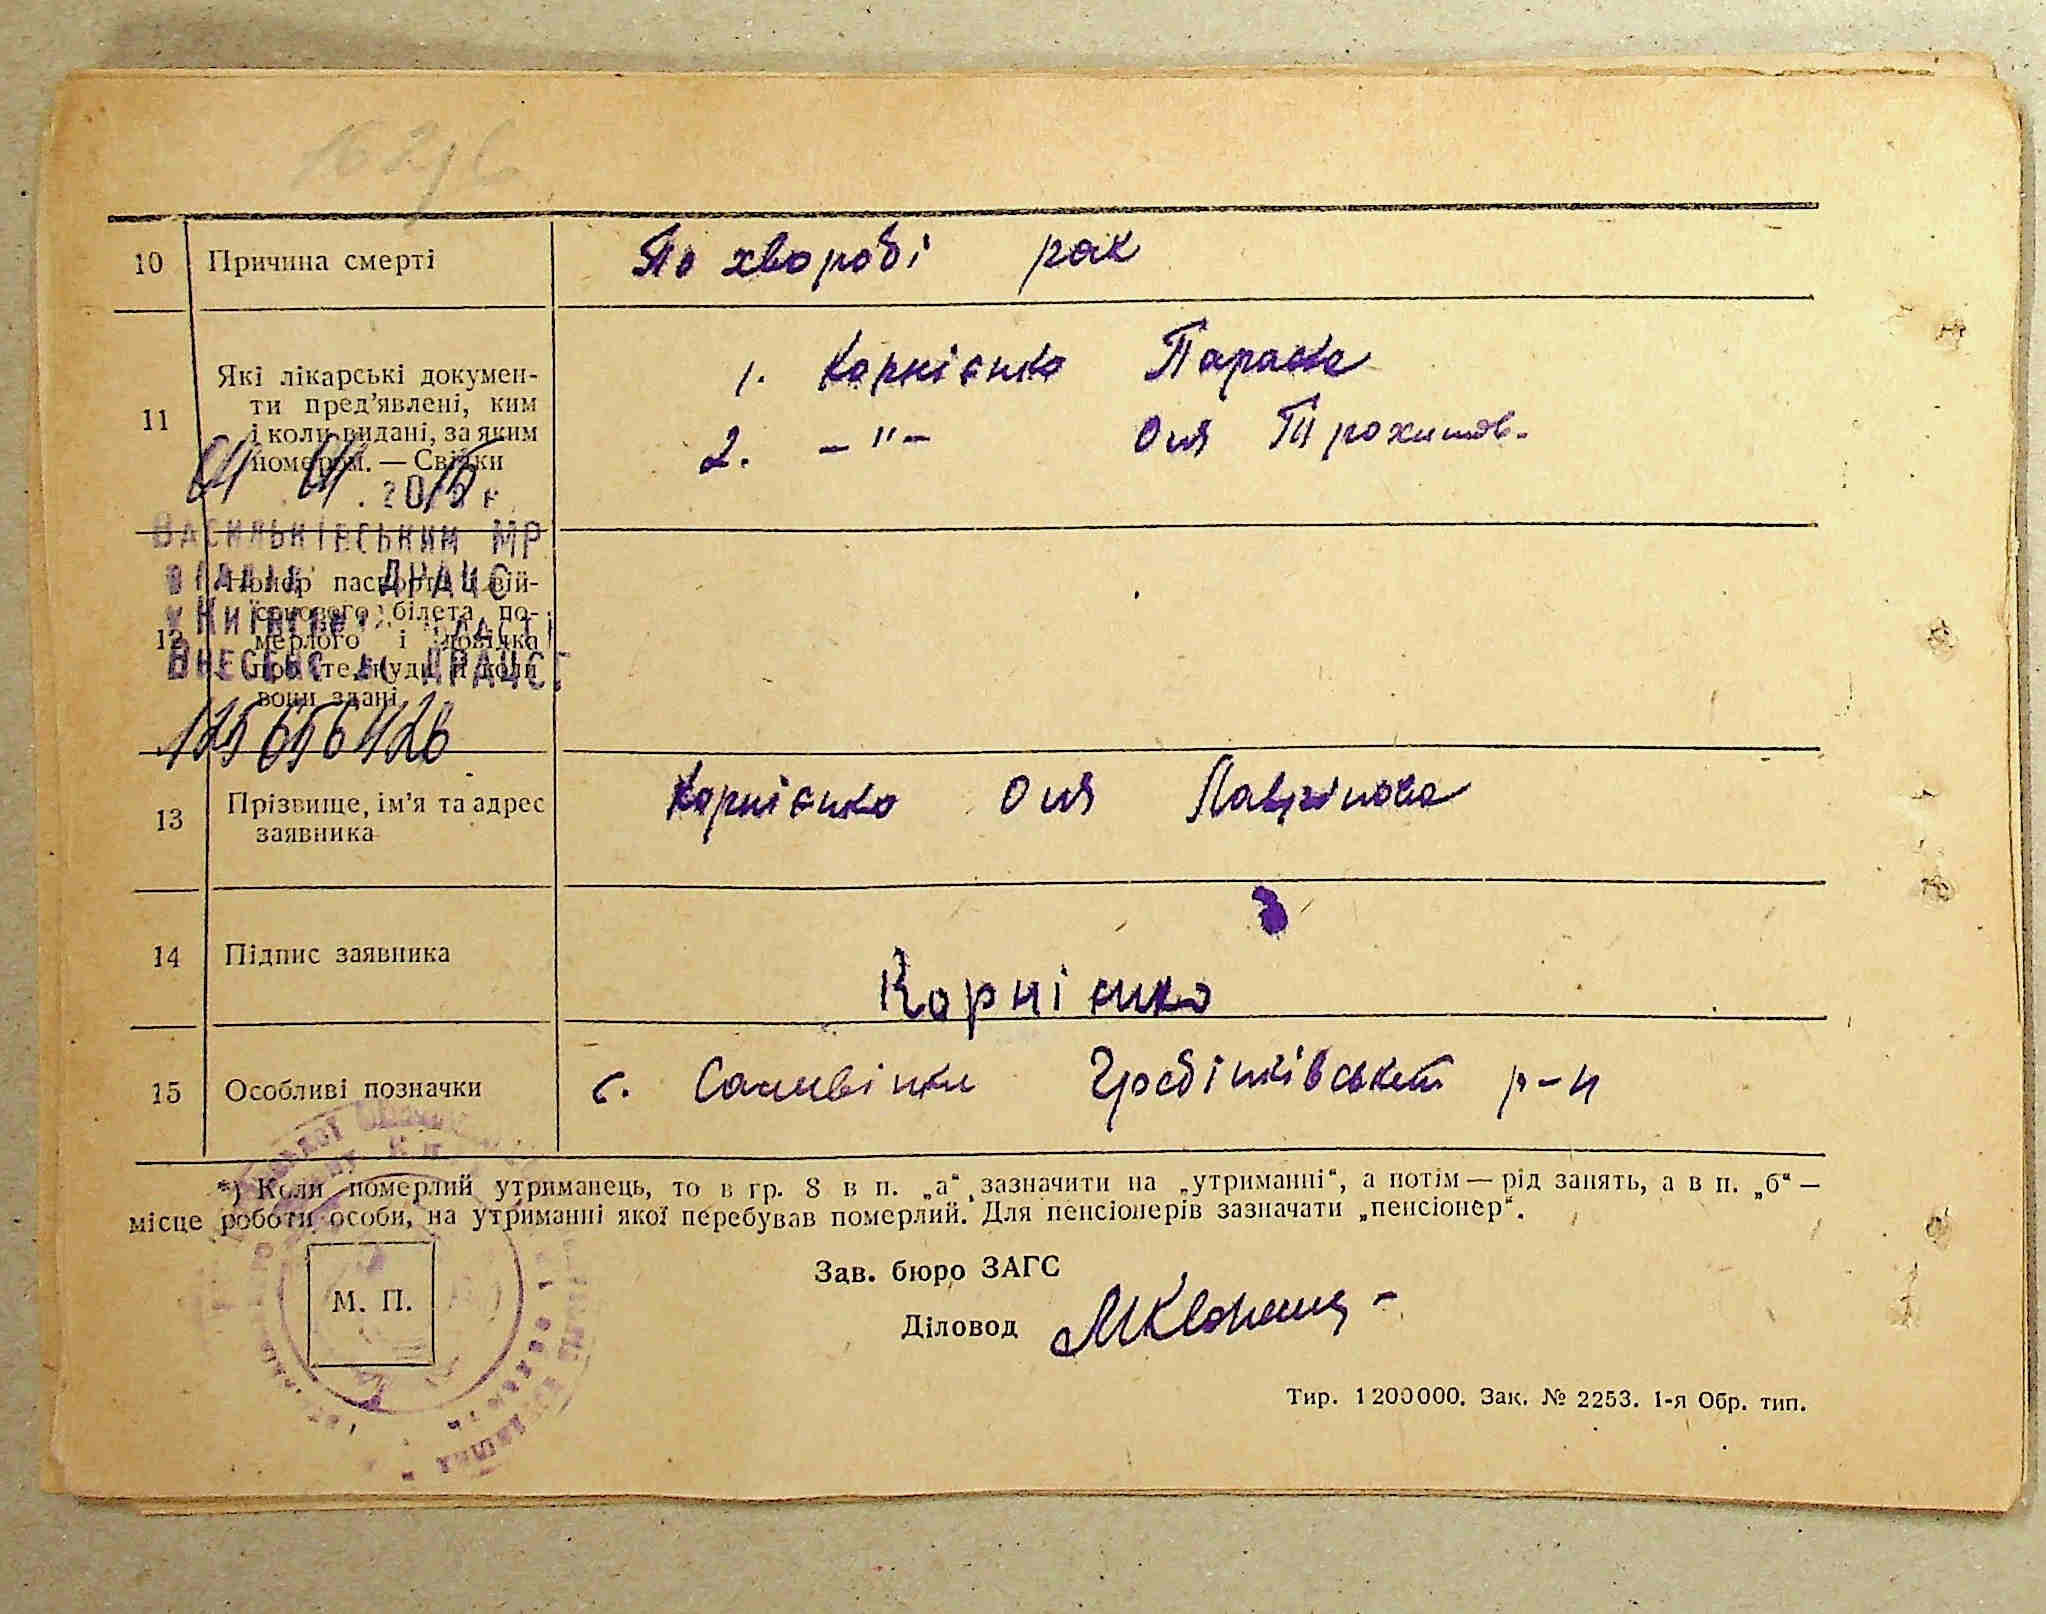 10 Причина смерті По хворобі рак
11 Які лікарські докумен-
ти пред'явлені, ким
і коли видані, за яким
номером. — Свідки
1. Корнієнко Параска
2. –"– Оля Трохимов.
Васильківським МР
ДРАЦС
12 Номер паспорта і вій-
ськового білета по-
мерлого і довідка
про те, куди й коли
вони здані
Внесене до ДРАЦСГ
13 Прізвище, ім'я та адрес
заявника
Корнієнко Оля
14 Підпис заявника Корнієнко
15 Особливі позначки с. Саливінки Гребінківський р-н
*) Коли померлий утриманець, то в гр. 8 в п. „а“ зазначити на „утриманні“, а потім — рід занять, а в п. „б“ —
місце роботи особи, на утриманні якої перебував померлий. Для пенсіонерів зазначати „пенсіонер“.
Зав. бюро ЗАГС
М. П.
Діловод
Тир. 1200000. Зак. № 2253. 1-я Обр. тип.